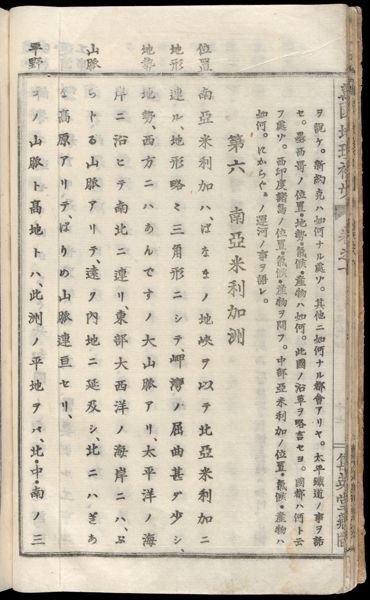 ヲ說ケ。新約克ハ如何ナル處ゾ。其他ニ如何ナル都會アリヤ。太平鐵道ノ事ヲ語
セ。墨西哥ノ位置・地勢・氣候・產物ハ如何。此國ノ沿革ヲ略言セヨ。國都ハ何ト云
フ處ゾ。西印度諸島ノ位置・氣候・產物ヲ問フ。中部亞米利加ノ位置・氣候・產物ハ
如何。にからぐゎノ運河ノ事ヲ語レ。
第六 南亞米利加洲
位置
南亞米利加ハ、ぱなまノ地峽ヲ以テ北亞米利加ニ
地形
連ル、地形略ミ三角形ニシテ、岬灣ノ屈曲甚ダ少シ、
地勢
地勢、西方ニハあんですノ大山脈アリ、太平洋ノ海
岸ニ沿ヒテ南北ニ連リ、東部大西洋ノ海岸ニハ、ぶ
山脈
らトる山脈アリテ、遠ク內地ニ延及シ、北ニハぎあ
高原アリテ、ぱりめ山脈連亘セリ、
平野
ノ山脈ト高地トハ、此洲ノ平地ヲバ、北・中・南ノ三